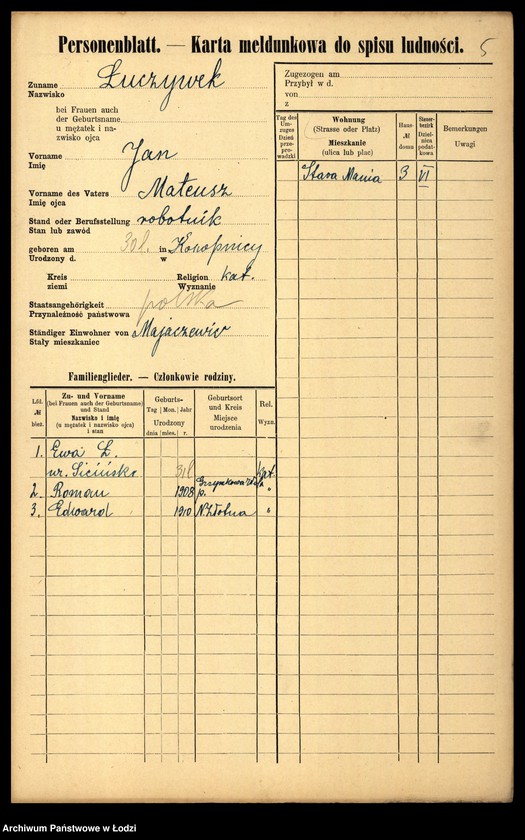 Personenblatt. — Karta meldunkowa do spisu ludności.
5
Zuname
Nazwisko
Łuczywek
bei Frauen auch
der Geburtsname
u mężatek i na-
zwisko ojca
Vorname
Imię
Jan
Vorname des Vaters
Imię ojca
Mateusz
Stand oder Berufsstellung
Stan lub zawód
robotnik
geboren am 30 l. in Konopnicy
Urodzony d. w
Kreis
ziemi
Religion kat.
Wyznanie
Staatsangehörigkeit
Przynależność państwowa
polska
Ständiger Einwohner von
Stały mieszkaniec
Majaczewic
Familienglieder. — Członkowie rodziny.
Lfd. № bież.
Zu- und Vorname
(bei Frauen auch der Geburtsname)
und Stand
Nazwisko i imię
(u mężatek i nazwisko ojca)
i stan
Geburts-
Tag Mon. Jahr
Urodzony
dnia mies. r.
Geburtsort
und Kreis
Miejsce
urodzenia
Rel.
Wyzn.
1. Ewa Ł.
ur. Sicińska 31 l. kat.
2. Roman 1908 p. "
3. Edward 1910 N. Złotna "
Zugezogen am
Przybył w d.
von
z
Tag des
Um-
zuges
Dzień
prze-
prowadzki
Wohnung
(Strasse oder Platz)
Mieszkanie
(ulica lub plac)
Haus-
№
domu
Steuer-
bezirk
Dziel-
nica
podat-
kowa
Bemerkungen
Uwagi
Stara Mania 3 VI
Archiwum Państwowe w Łodzi